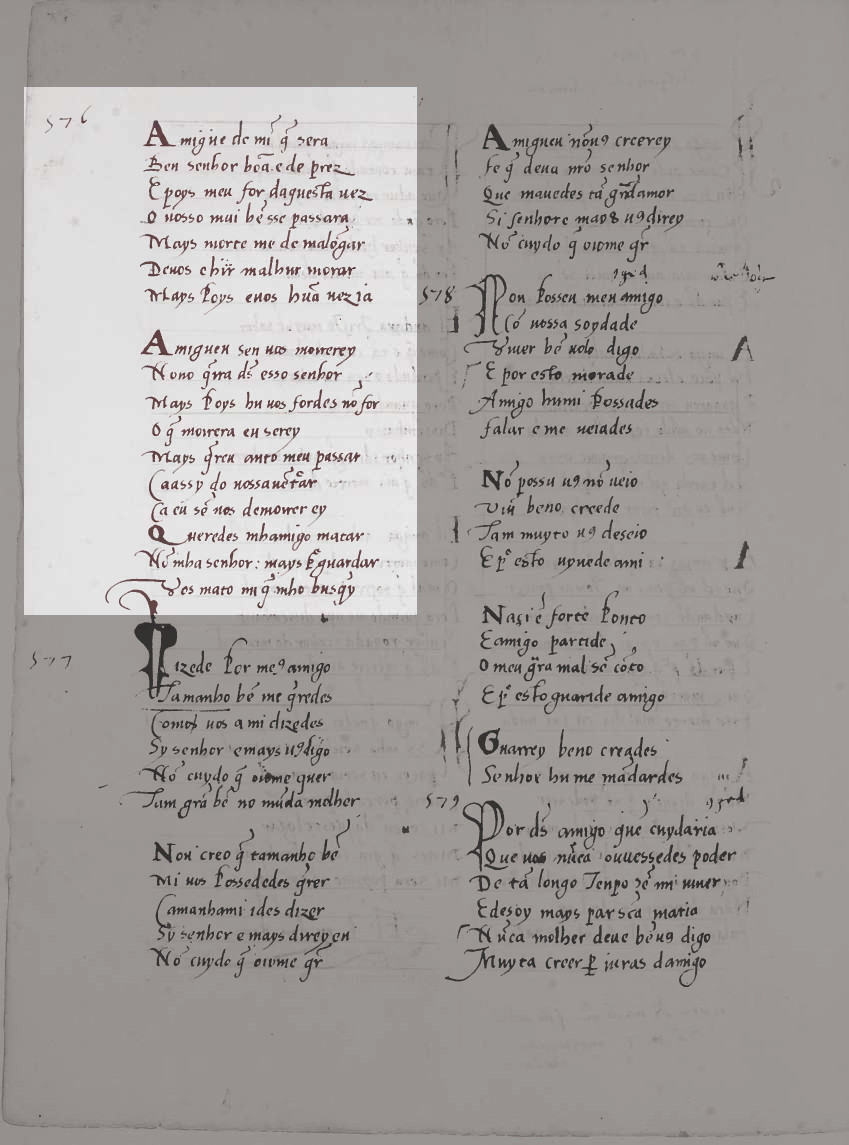 576
Amigue de mĩ q̃ sera
Ben senhor bõa e de prez
E poys meu for daquesta uez
O uosso mui bẽ sse passara
Mays morte me de malõgar
De uos e hir̃ malhur morar
Mays poys euos hũa uez ia
Amigueu sen uos morrerey
Nono q̃rra ds̃ esso senhor
Mays poys hu uos fordes nõ for
O q̃ morrera eu serey
Mays q̃reu anto meu passar
Ca assy do uossauẽtar
Ca eu sẽ uos de morrer ey
Queredes mhamigo matar
Nõ mha senhor: mays p̃ guardar
Uos mato mi q̃ mho busq̃y
577
Dizede por me9 amigo
Tamanho bẽ me q̃redes
Como uos a mi dizedes
Sy senhor e mays u9 digo
Nõ cuydo q̃ oiome quer
Tam grã bẽ no mũda molher
Non creo q̃ tamanho bẽ
Mi uos possededes q̃rer
Camanhami ides dizer
Sy senhor e mays direy en
Nõ cuydo q̃ oiome q̃r
Amigueu nõu9 creerey
Fe q̃ deua nr̃o senhor
Que mauedes tã grãdamor
Si senhor e mays u9 direy
Nõ cuydo q̃ oiome q̃r
578
Non posseu meu amigo
Cõ uossa soydade
Uiuer bẽ uolo digo
E por esto morade
Amigo hu mi possades
falar e me ueiades
Nõ possu u9 nõ ueio
Uiũ beno creede
Tam muyto u9 deseio
E pº esto uyuede ami
Naçi ẽ forte ponto
E amigo partide
O meu grã mal sẽ cõto
E pº esto guaride amigo
Guarrey beno creades
Senhor hu me mãdardes
579
Por ds̃ amigo que cuydaria
Que uos nũca ouuessedes poder
De tã longo Tenpo sẽ mi uiuer
E desoy mays par scã maria
Nũca molher deue bẽ u9 digo
Muyta creer p̲ iuras damigo